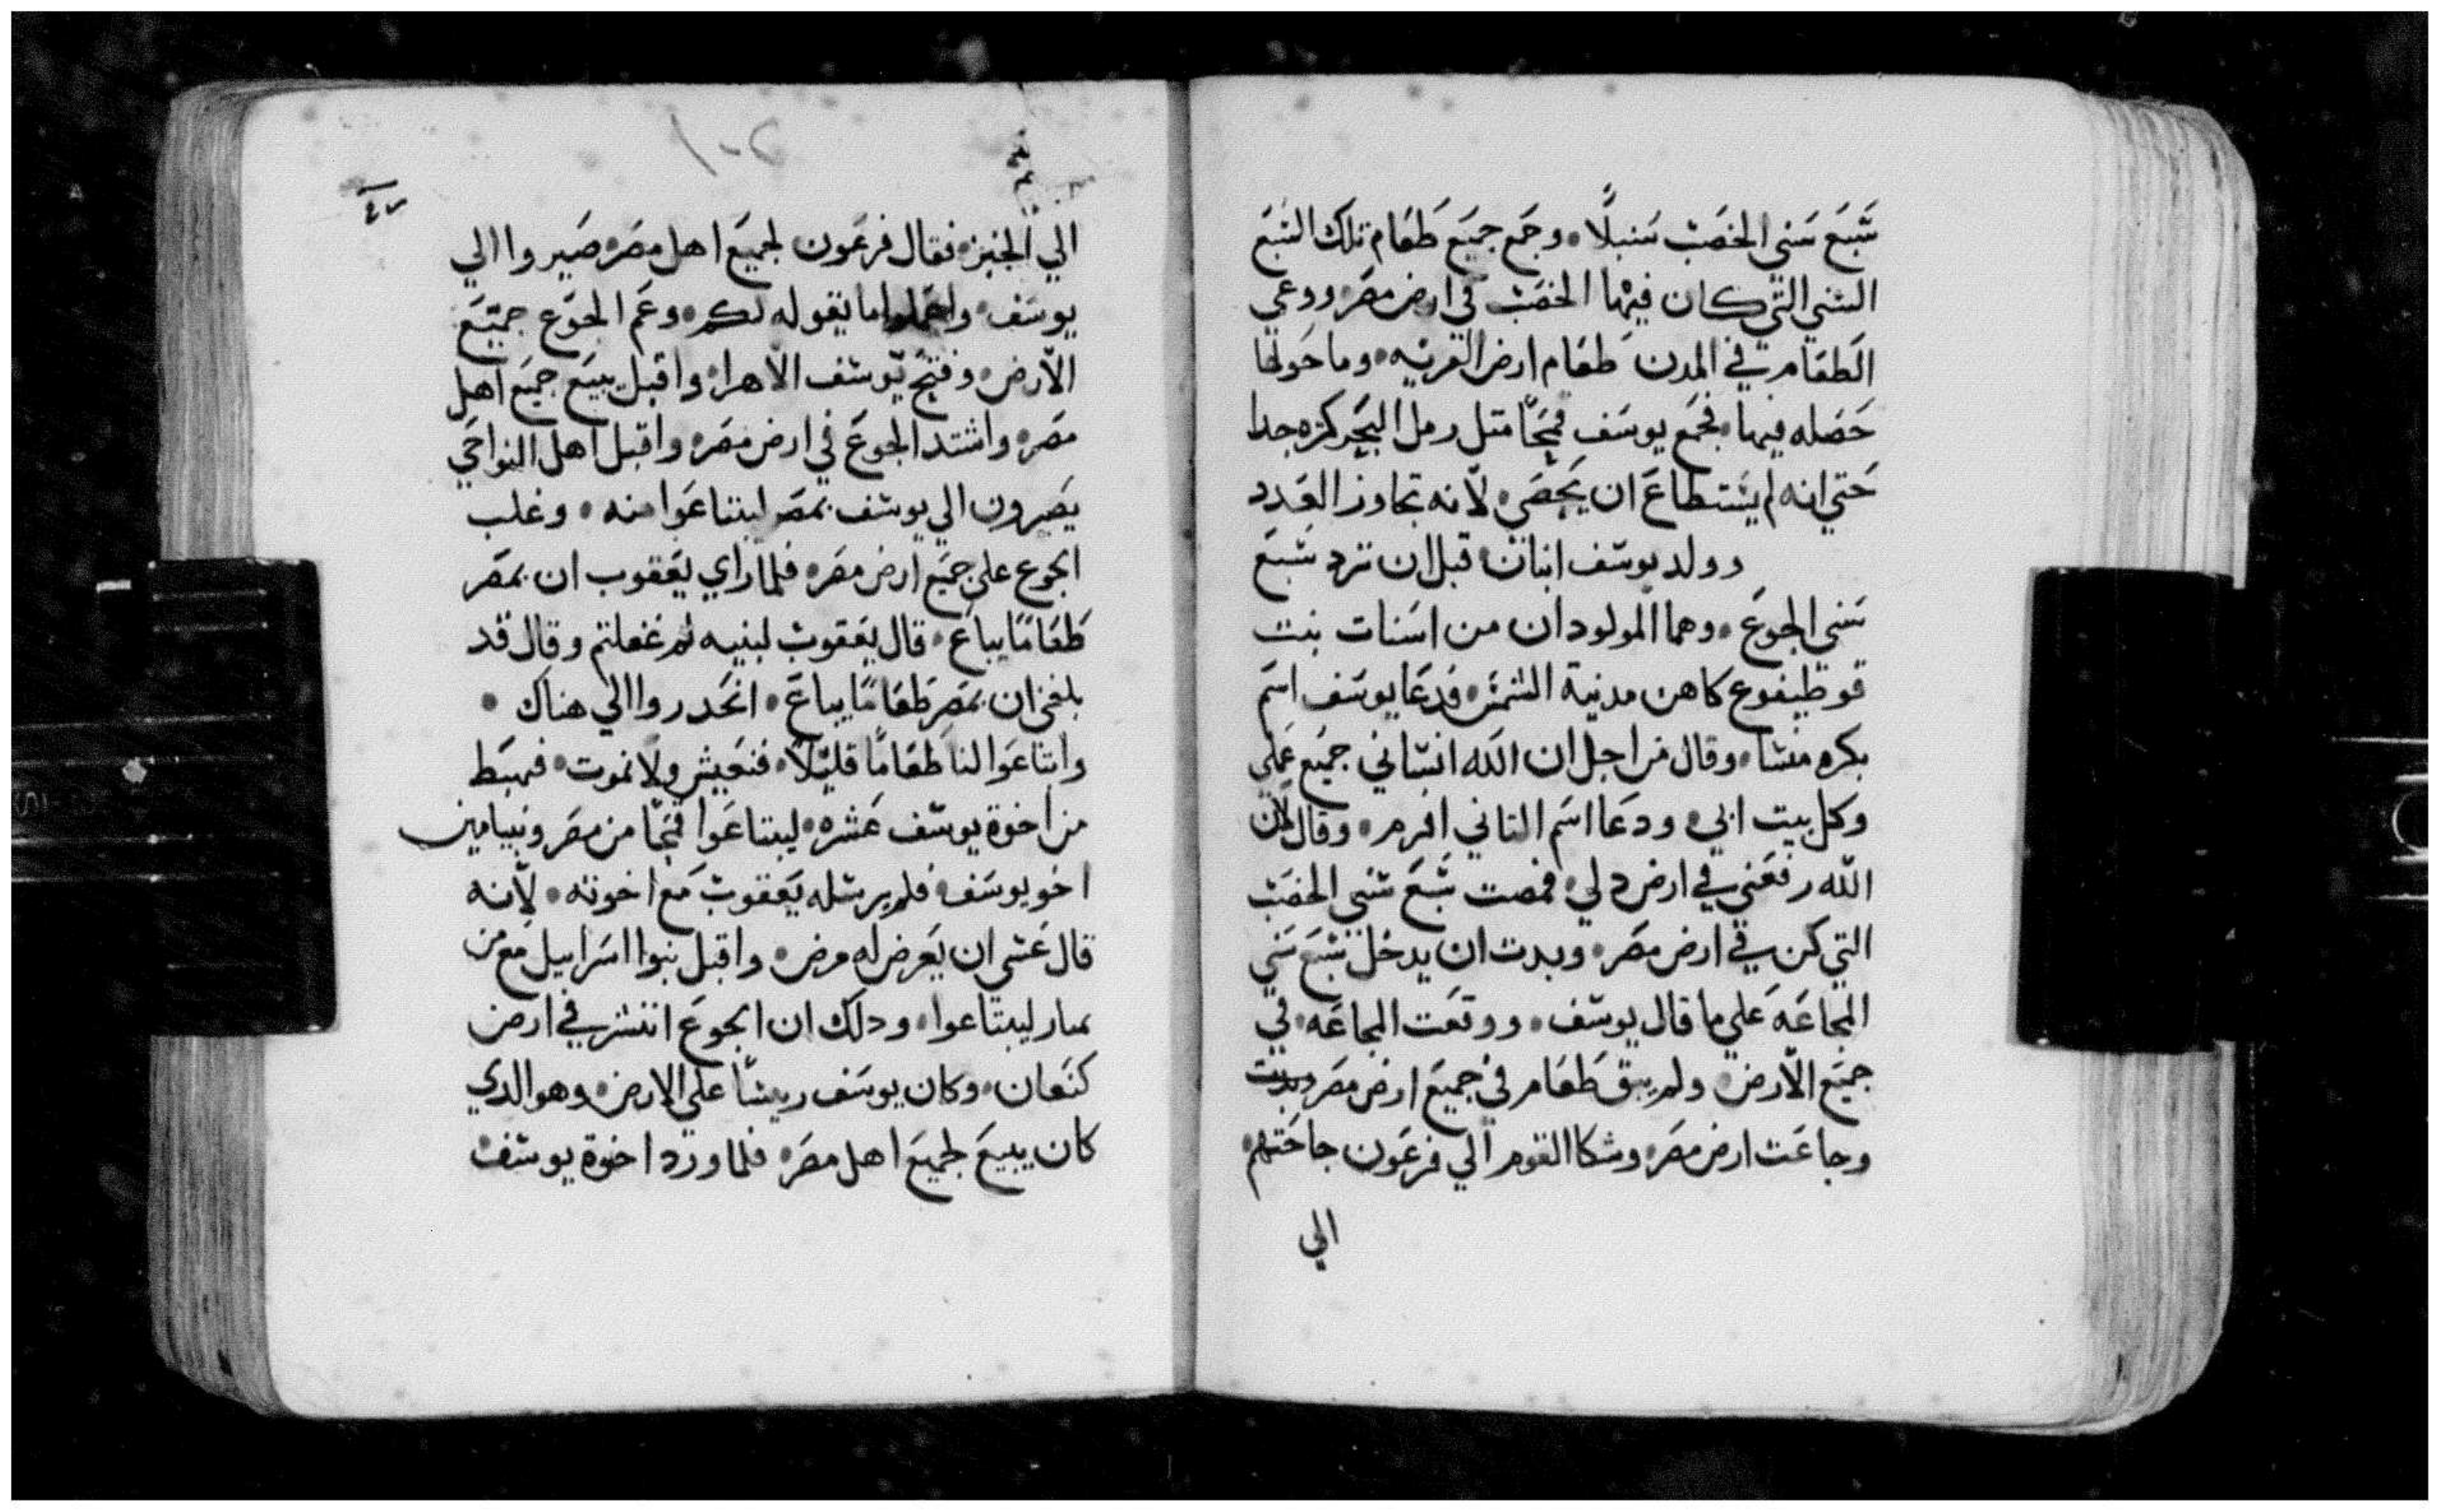 سبع سني الخصب سنبلًا • وجمع جميع طعام تلك السبع
السني التي كان فيها الخصب في ارض مصر • ووعي
الطعام في المدن طعام ارض القريه • وما حولها
حصله فيها • فجمع يوسف قمحًا متل رمل البحر كتره جدا
حتي انه لم يستطاع ان يحصي • لأنه تجاوز العدد
وولد يوسف ابنان • قبل ان ترد سبع
سني الجوع • وهما المولودان من اسنات بنت
قوطيفوع كاهن مدنية الشمس • فدعا يوسف اسم
بكره منسا • وقال من اجل ان الله انساني جميع عملي
وكل بيت ابي • ودعا اسم التاني افرم • وقال لان
الله رفعني في ارض دلي • فمصت سبع سني الخصب
التي كن في ارض مصر • وبدت ان يدخل سبع سني
المجاعه علي ما قال يوسف • ووقعت المجاعه • في
جميع الأرض • ولم يبق طعام في جميع ارض مصر
وجاعت ارض مصر • وشكا القوم الي فرعون جاحتهم •
الي
١٠٢
٤٧
الي الخبز • فقال فرعون لجميع اهل مصر • صيروا الي
يوسف • واعملوا ما يقوله لكم • وعم الجوع جميع
الأرض • وفتح يوسف الاهرا • واقبل يبيع جميع اهل
مصر • واشتد الجوع في ارض مصر • واقبل اهل النواحي
يصيرون الي يوسف بمصر ليبتاعوا منه • وغلب
الجوع علي جميع ارض مصر • فلما راي يعقوب ان بمصر
طعامًا يباع • قال يعقوب لبنيه لم غفلتم وقال قد
بلغني ان بمصر طعامًا يباع • انحدروا الي هناك •
وابتاعوا لنا طعامًا قليلًا • فنعيش ولا نموت • فهبط
من اخوة يوسف عشره • ليبتاعوا قمحًا من مصر وبنيامين
اخو يوسف • فلم يرسله يعقوب مع اخوته • لأنه
قال عسي ان يعرض له مرض • واقبل بنوا اسراييل مع من
يمار ليبتاعوا • ودلك ان الجوع انتشر في ارض
كنعان • وكان يوسف ريسًا علي الارض • وهو الدي
كان يبيع لجميع اهل مصر • فلما ورد اخوة يوسف •